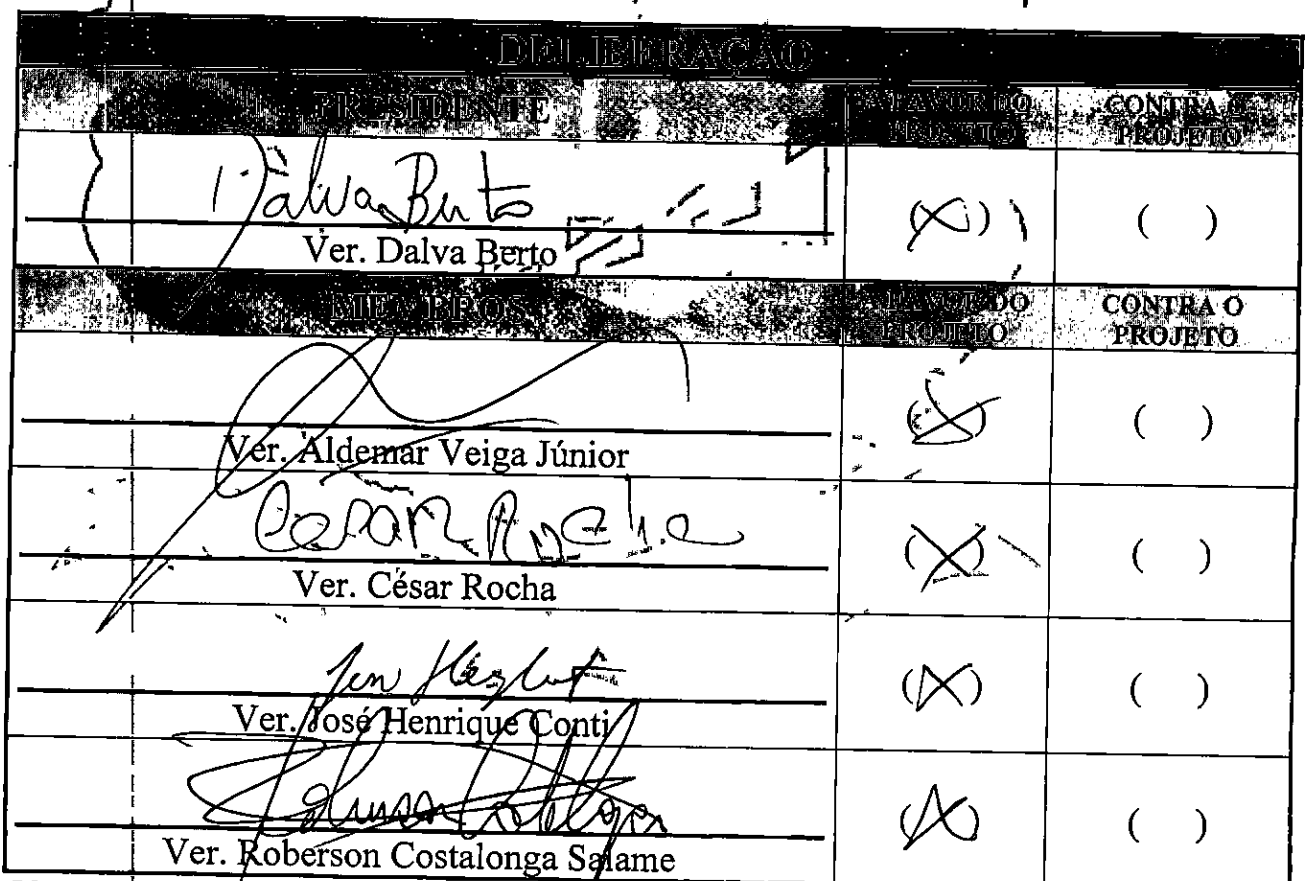 DELIBERAÇÃO
PRESIDENTE A FAVOR DO PROJETO CONTRA O PROJETO
Dalva Berto
Ver. Dalva Berto (X) ( )
MEMBROS A FAVOR DO PROJETO CONTRA O PROJETO
Ver. Aldemar Veiga Júnior (X) ( )
Cesar Rocha
Ver. César Rocha (X) ( )
Ver. José Henrique Conti (X) ( )
Ver. Roberson Costalonga Salame (X) ( )